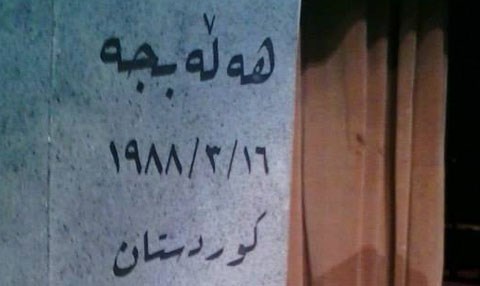 هەڵەبجە
١٩٨٨/٣/١٦
كوردستان